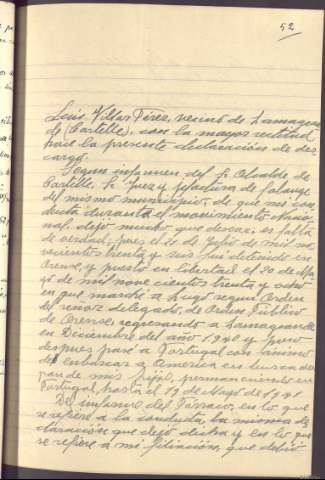 52
Luis Villar Pérez, vecino de
de (Cartelle), con la mayor rectitud
hace la presente declaración de des-
cargo.
Segun informen del Sr Alcalde de
Cartelle, Sr Juez y jefatura de falange
del mismo municipio, de que mi con
ducta durante el movimiento Nacio
nal, dejo mucho que desear, es falta
de verdad, pues el 20 de Julio de mil no
vecientos treinta y seis fui detenido en
Orense, y puesto en libertad el 20 de Ma
yo de mil nove cientos treinta y ocho
en que marché a Lugo segun Orden
del señor delegado, de Orden Público
de Orense, regresando a
en Diciembre del año 1940 y poco
despues pasé a Portugal con animo
de enbarcar a America en busca del
pan de mis hijos, permaneciendo en
Portugal, hasta el 19 de Mayo de 1941
De informe del Párraco, en lo que
se refiere a la conducta, la misma de
claración que dejo dicha y en lo que
se refiere a mi filiación, que debió